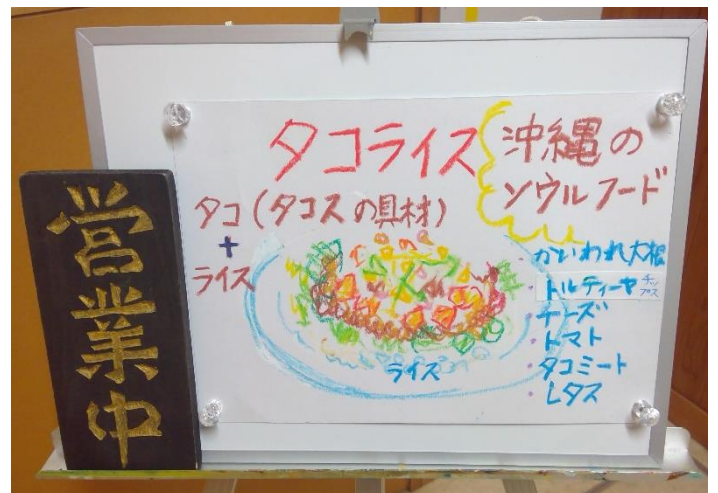 営業中
タコライス
沖縄の
ソウルフード
タコ(タコスの具材)
+
ライス
ライス
・かいわれ大根
・トルティーヤチップス
・チーズ
・トマト
・タコミート
・レタス